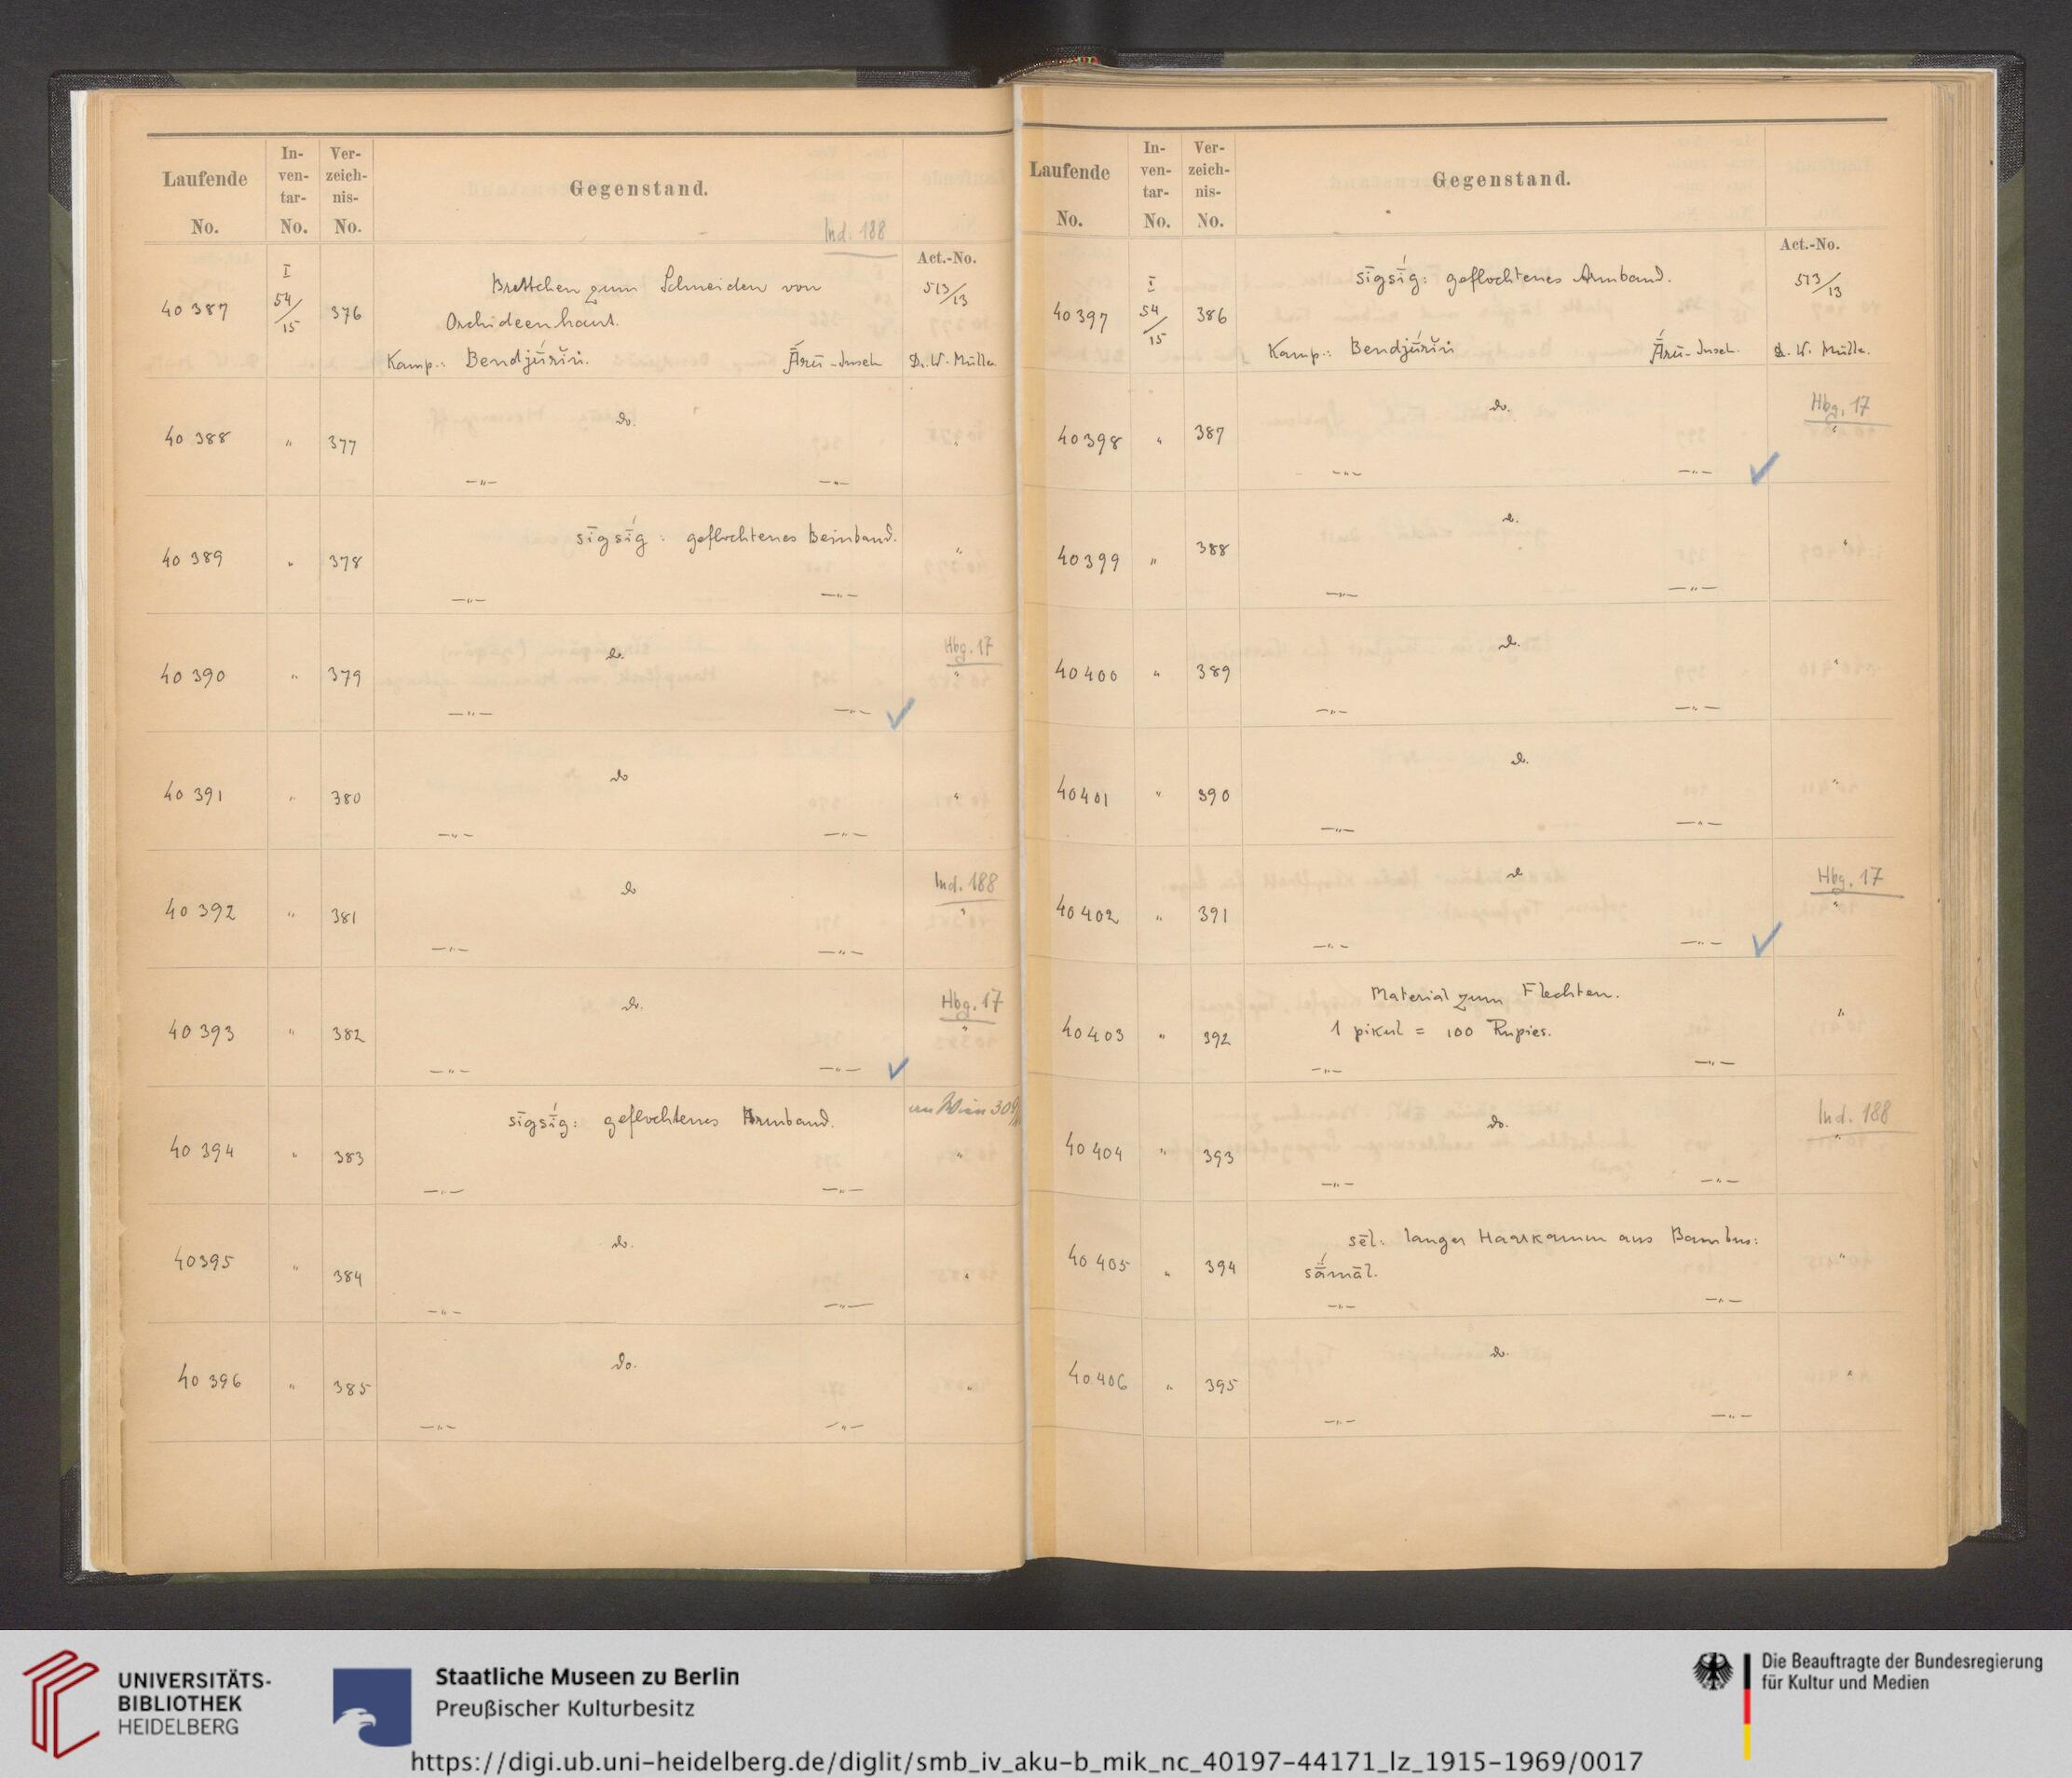 Laufende No. In-ven-tar- No. Ver-zeich-nis- No. Gegenstand.
Ind. 188
Act.-No.
40 387 I 54/15 376 Brettchen zum Schneiden von 513/13
Orchideenhaut.
Kamp.: Bendjúrin. Ārū-Inseln Dr. W. Müller
40 388 " 377 do. "
—"— —"—
40 389 " 378 sīgsīg: geflochtenes Beinband. "
—"— —"—
Hbg. 17
40 390 " 379 do. "
—"— —"— ✓
40 391 " 380 do "
—"— —"—
Ind. 188
40 392 " 381 do "
—"— —"—
Hbg. 17
40 393 " 382 do. "
—"— —"— ✓
an Wien 309
40 394 " 383 sīgsīg: geflochtenes Armband. "
—"— —"—
40395 " 384 do. "
—"— —"—
40 396 " 385 do. "
—"— —"—
Laufende No. In-ven-tar- No. Ver-zeich-nis- No. Gegenstand.
Act.-No.
40397 I 54/15 386 sīgsīg: geflochtenes Armband. 513/13
Kamp.: Bendjúrin Ārū-Inseln. Dr. W. Müller.
Hbg. 17
40398 " 387 do. "
—"— —"— ✓
40399 " 388 do. "
—"— —"—
40400 " 389 do. "
—"— —"—
40401 " 390 do. "
—"— —"—
Hbg. 17
40402 " 391 do "
—"— —"— ✓
40403 " 392 Material zum Flechten. "
1 pikul = 100 Rupies.
—"— —"—
Ind. 188
40404 " 393 do. "
—"— —"—
40405 " 394 sēl: langer Haarkamm aus Bambus: "
sāmāl.
—"— —"—
40406 " 395 do. "
—"— —"—
UNIVERSITÄTS-
BIBLIOTHEK
HEIDELBERG
Staatliche Museen zu Berlin
Preußischer Kulturbesitz
Die Beauftragte der Bundesregierung
für Kultur und Medien
https://digi.ub.uni-heidelberg.de/diglit/smb_iv_aku-b_mik_nc_40197-44171_lz_1915-1969/0017